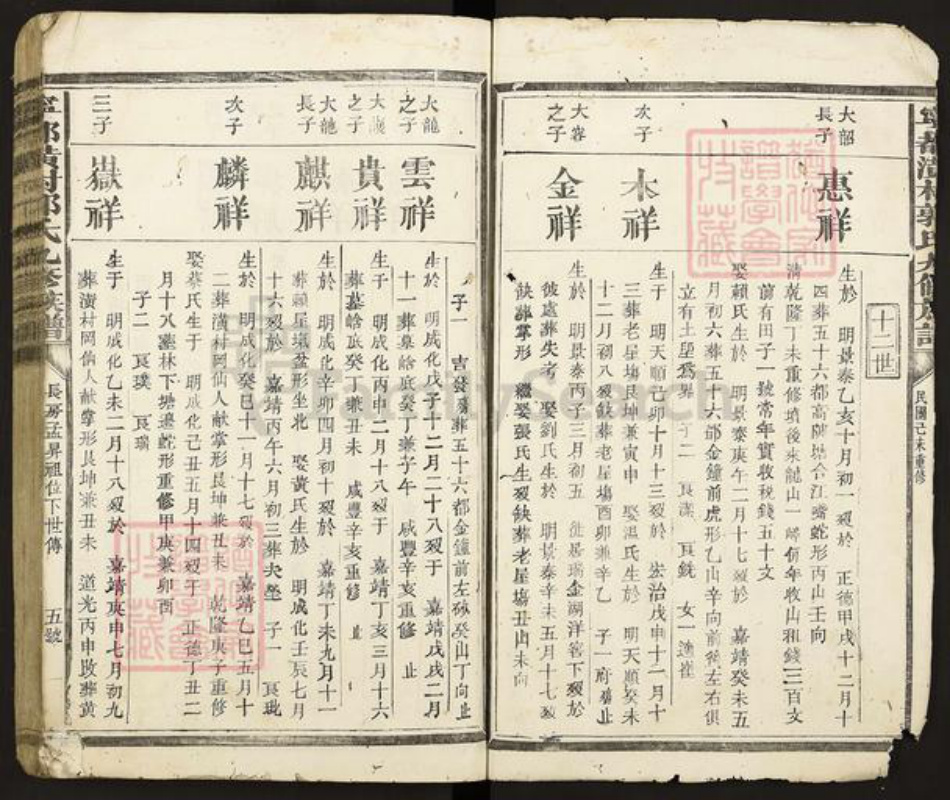 民國己未重修
十二世
大韶長子
惠祥
生於 明景泰乙亥十月初一歿於 正德甲戌十二月十
四葬五十六都高陂塘合江嘴蛇形丙山壬向
清乾隆丁未重修墳後來龍山一嶂領年收山租錢三百文
前有田子一號常年實收税錢五十文
娶賴氏生於 明景泰庚午二月十七歿於 嘉靖癸未五
月初六葬五十六都金鐘前虎形乙山辛向前後左右俱
立有土堅為界 子二 良漢 良銑 女一適崔
次子
木祥
生于 明天順己卯十月十三歿於 宏治戊申十二月十
三葬老屋塲艮坤兼寅申 娶温氏生於 明天順癸未
十二月初八歿缺葬老屋塲酉卯兼辛乙 子一府殤止
大容之子
金祥
生於 明景泰丙子三月初五 徙居瑞金湖洋窖下歿於
彼處葬失考 娶劉氏生於 明景泰辛未五月十七歿
缺葬掌形 繼娶張氏生歿缺葬老屋塲丑山未向
子一 吉發殤葬五十六都金鐘前左砂癸山丁向止
大龍之子
雲祥
生於 明成化戊子十二月二十八歿于 嘉靖戊戌二月
十一葬墓峆底癸丁兼子午 咸豐辛亥重修 止
之子
貴祥
生于 明成化丙申二月十八歿于 嘉靖丁亥三月十六
葬墓峆底癸丁兼丑未 咸豐辛亥重修 止
大龍長子
麒祥
生於 明成化辛卯四月初十歿於 嘉靖丁未九月十一
葬顧屋壩盆形坐北 娶黃氏生於 明成化壬辰七月
十六歿於 嘉靖丙午六月初三葬失墾 子一 良玭
次子
麟祥
生於 明成化癸巳十一月十七歿於 嘉靖乙巳五月十
二葬璜村岡仙人献掌形艮坤兼丑未 乾隆庚子重修
娶蔡氏生于 明成化己丑五月十四歿于 正德丁丑二
月十八塟林下塘邊蛇形重修甲庚兼卯酉
子二 良璞 良瑞
三子
嶽祥
生于 明成化乙未二月十八歿於 嘉靖庚申七月初九
葬璜村岡仙人献掌形艮坤兼丑未 道光丙申改葬黃
長房孟昇祖位下世傳 五號